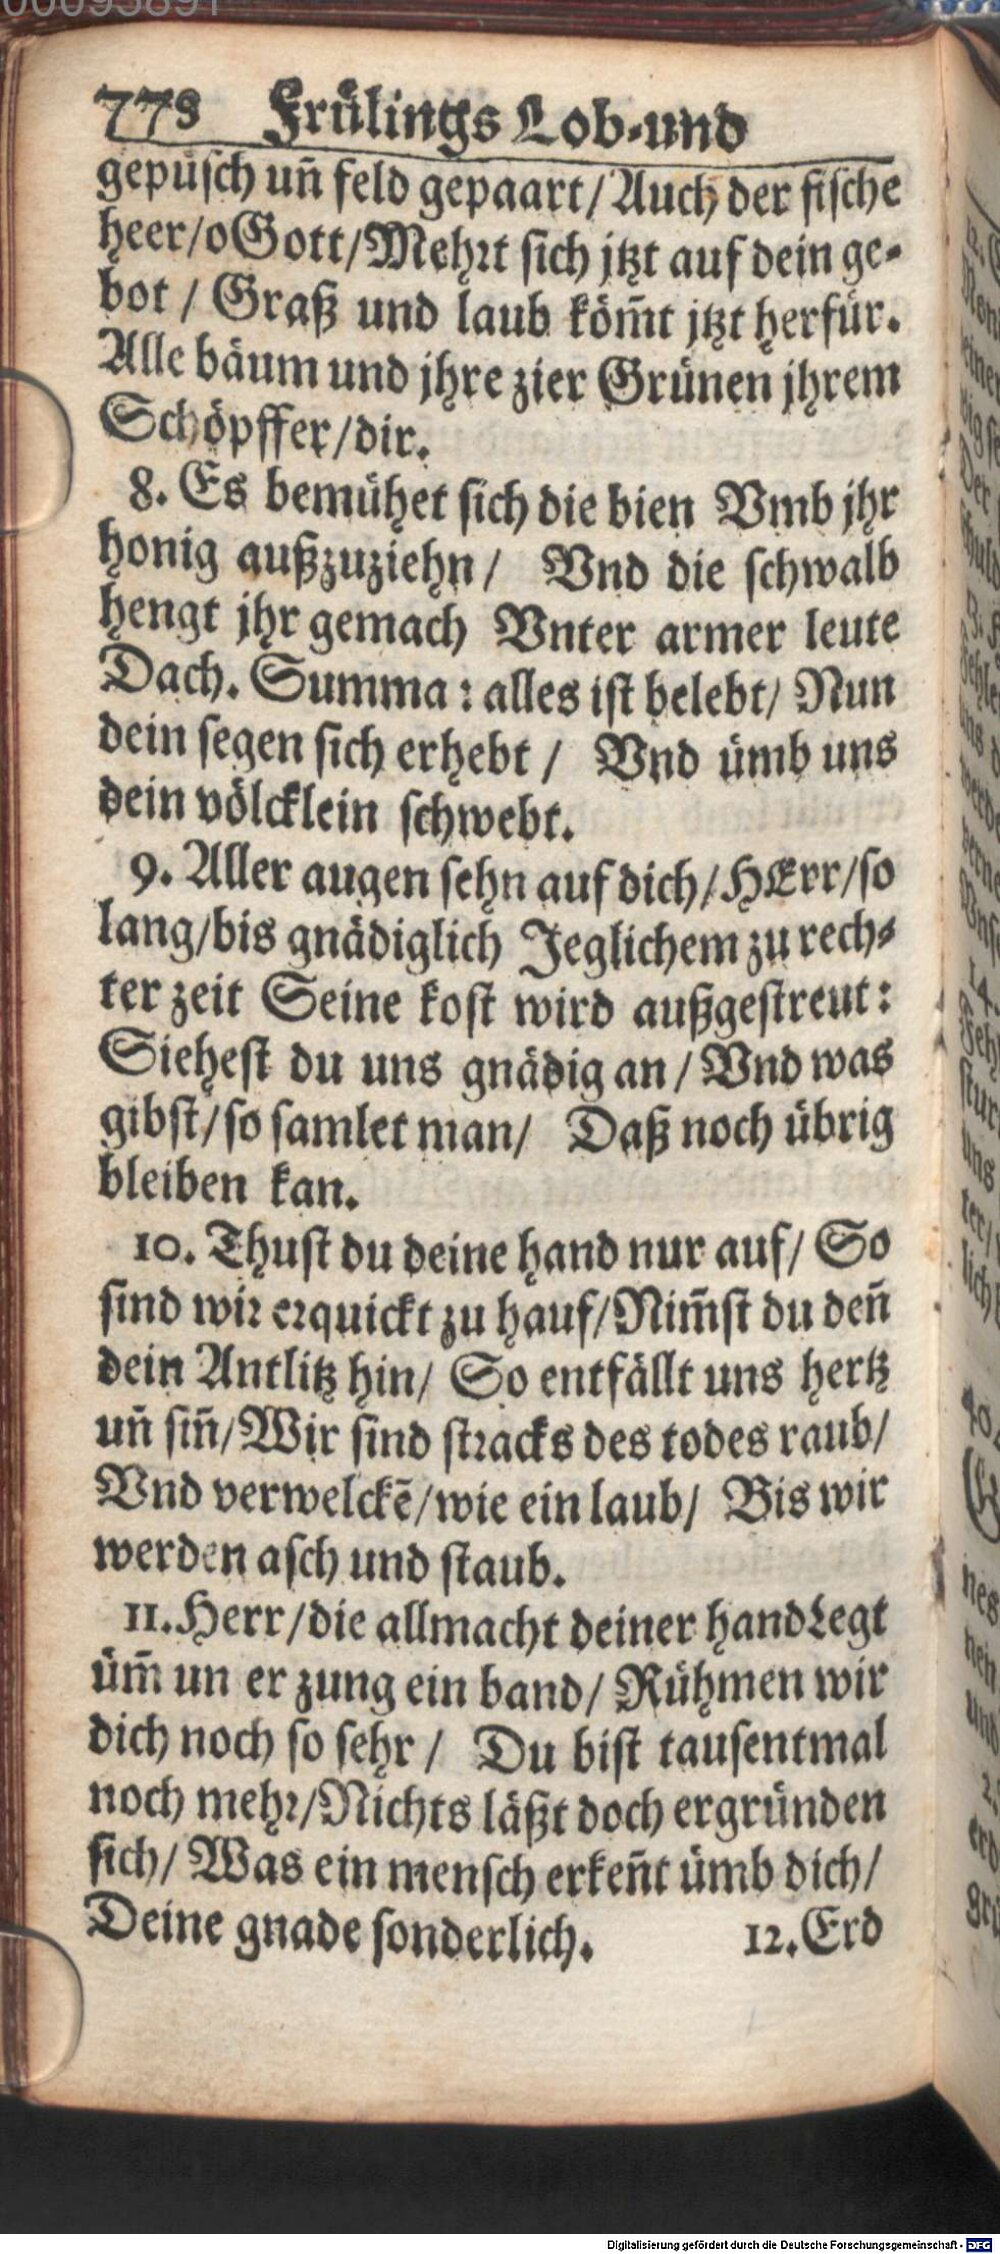 00095891
778 Frülings Lob-und
gepüsch uñ feld gepaart/Auch der fische
heer/o Gott/Mehrt sich jtzt auf dein ge-
bot / Graß und laub köm̃t jtzt herfür.
Alle bäum und jhre zier Grünen jhrem
Schöpffer/dir.
8. Es bemühet sich die bien Vmb jhr
honig außzuziehn/ Vnd die schwalb
hengt jhr gemach Vnter armer leute
Dach. Summa: alles ist belebt/ Nun
dein segen sich erhebt / Vnd ümb uns
dein völcklein schwebt.
9. Aller augen sehn auf dich/HErr/so
lang/bis gnädiglich Jeglichem zu rech-
ter zeit Seine kost wird außgestreut:
Siehest du uns gnädig an/Vnd was
gibst/so samlet man/ Daß noch übrig
bleiben kan.
10. Thust du deine hand nur auf/ So
sind wir erquickt zu hauf/Nim̃st du deñ
dein Antlitz hin/ So entfällt uns hertz
uñ siñ/Wir sind stracks des todes raub/
Vnd verwelckẽ/wie ein laub/ Bis wir
werden asch und staub.
11. Herr/die allmacht deiner hand Legt
üm̃ un er zung ein band/ Rühmen wir
dich noch so sehr / Du bist tausentmal
noch mehr/Nichts läßt doch ergründen
sich/ Was ein mensch erkeñt ümb dich/
Deine gnade sonderlich. 12. Erd
Digitalisierung gefördert durch die Deutsche Forschungsgemeinschaft - DFG